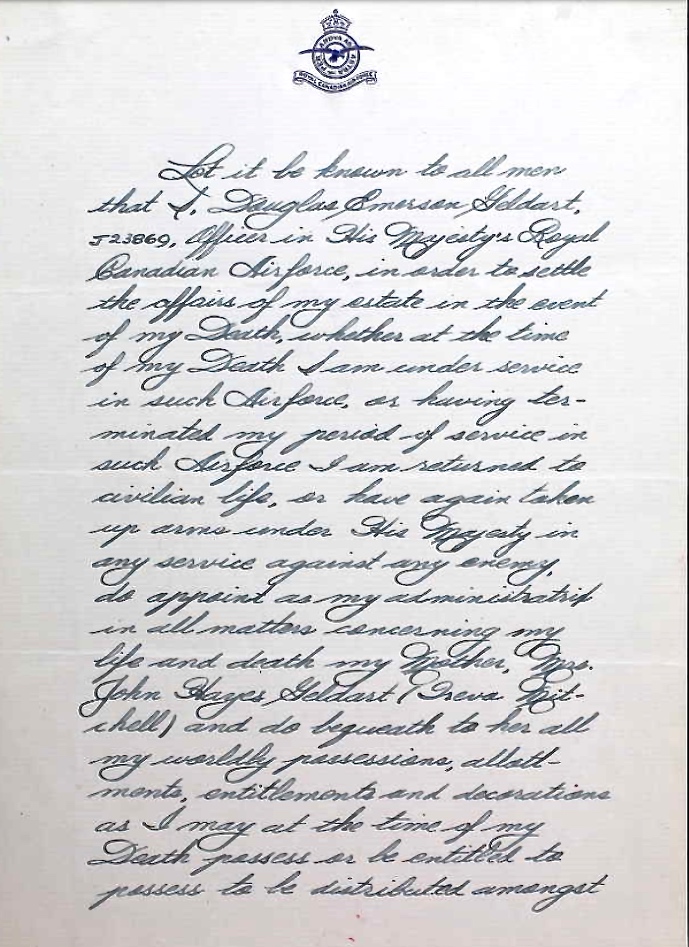 PER ARDUA AD ASTRA
ROYAL CANADIAN AIR FORCE
Let it be known to all men
that I, Douglas Emerson Geldart,
J23869, Officer in His Majesty's Royal
Canadian Airforce, in order to settle
the affairs of my estate in the event
of my Death, whether at the time
of my Death I am under service
in such Airforce, or having ter-
minated my period of service in
such Airforce I am returned to
civilian life, or have again taken
up arms under His Majesty in
any service against any enemy,
do appoint as my administratrix
in all matters concerning my
life and death my Mother, Mrs.
John Hayes Geldart (Greva Mit-
chell) and do bequeath to her all
my worldly possessions, allott-
ments, entitlements and decorations
as I may at the time of my
Death possess or be entitled to
possess to be distributed amongst